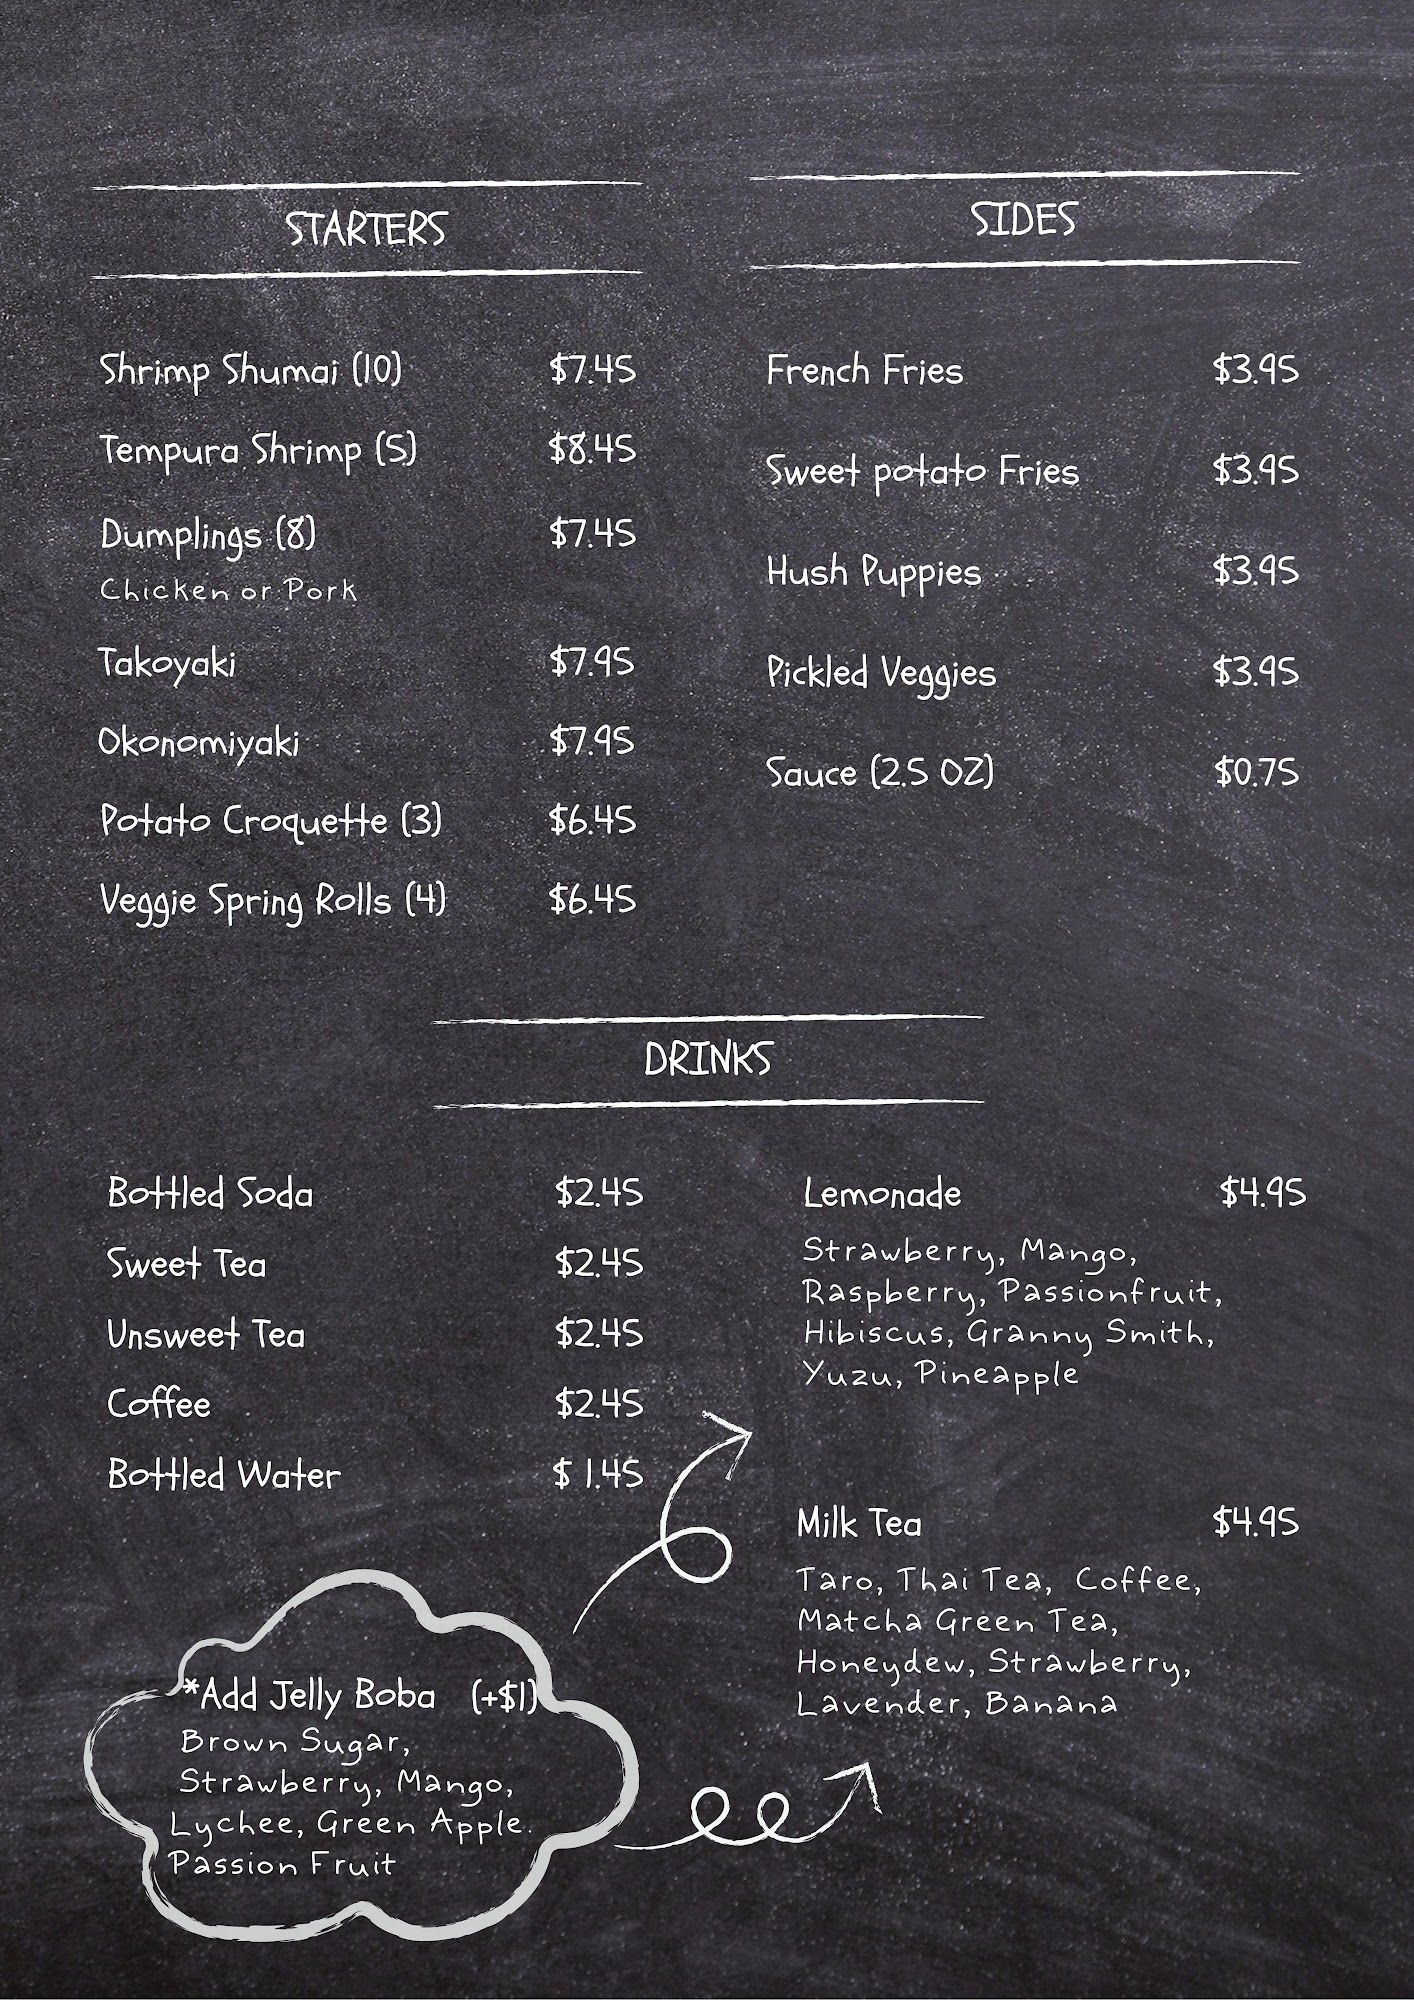 STARTERS
Shrimp Shumai (10) $7.45
Tempura Shrimp (5) $8.45
Dumplings (8) $7.45
Chicken or Pork
Takoyaki $7.95
Okonomiyaki $7.95
Potato Croquette (3) $6.45
Veggie Spring Rolls (4) $6.45
SIDES
French Fries $3.95
Sweet potato Fries $3.95
Hush Puppies $3.95
Pickled Veggies $3.95
Sauce (2.5 OZ) $0.75
DRINKS
Bottled Soda $2.45
Sweet Tea $2.45
Unsweet Tea $2.45
Coffee $2.45
Bottled Water $ 1.45
*Add Jelly Boba (+$1)
Brown Sugar,
Strawberry, Mango,
Lychee, Green Apple.
Passion Fruit
Lemonade $4.95
Strawberry, Mango,
Raspberry, Passionfruit,
Hibiscus, Granny Smith,
Yuzu, Pineapple
Milk Tea $4.95
Taro, Thai Tea, Coffee,
Matcha Green Tea,
Honeydew, Strawberry,
Lavender, Banana